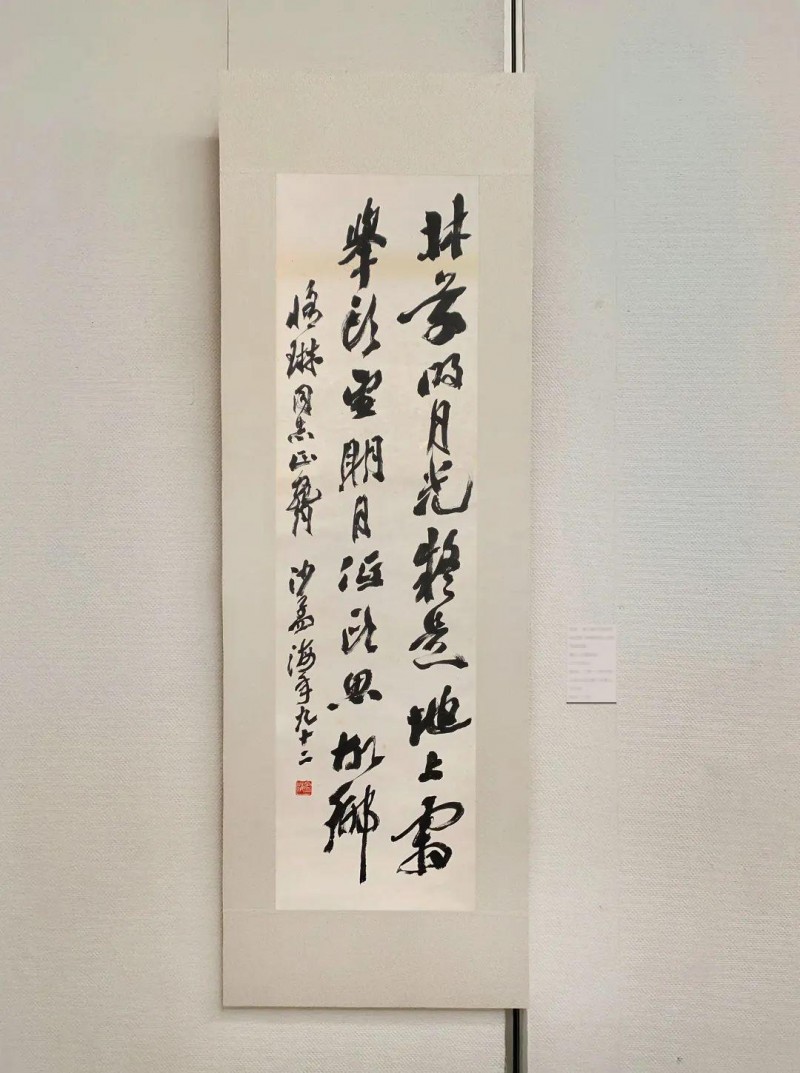 牀前明月光疑是地上霜
舉頭望明月低頭思故鄉
琳同志正 沙孟海年九十二